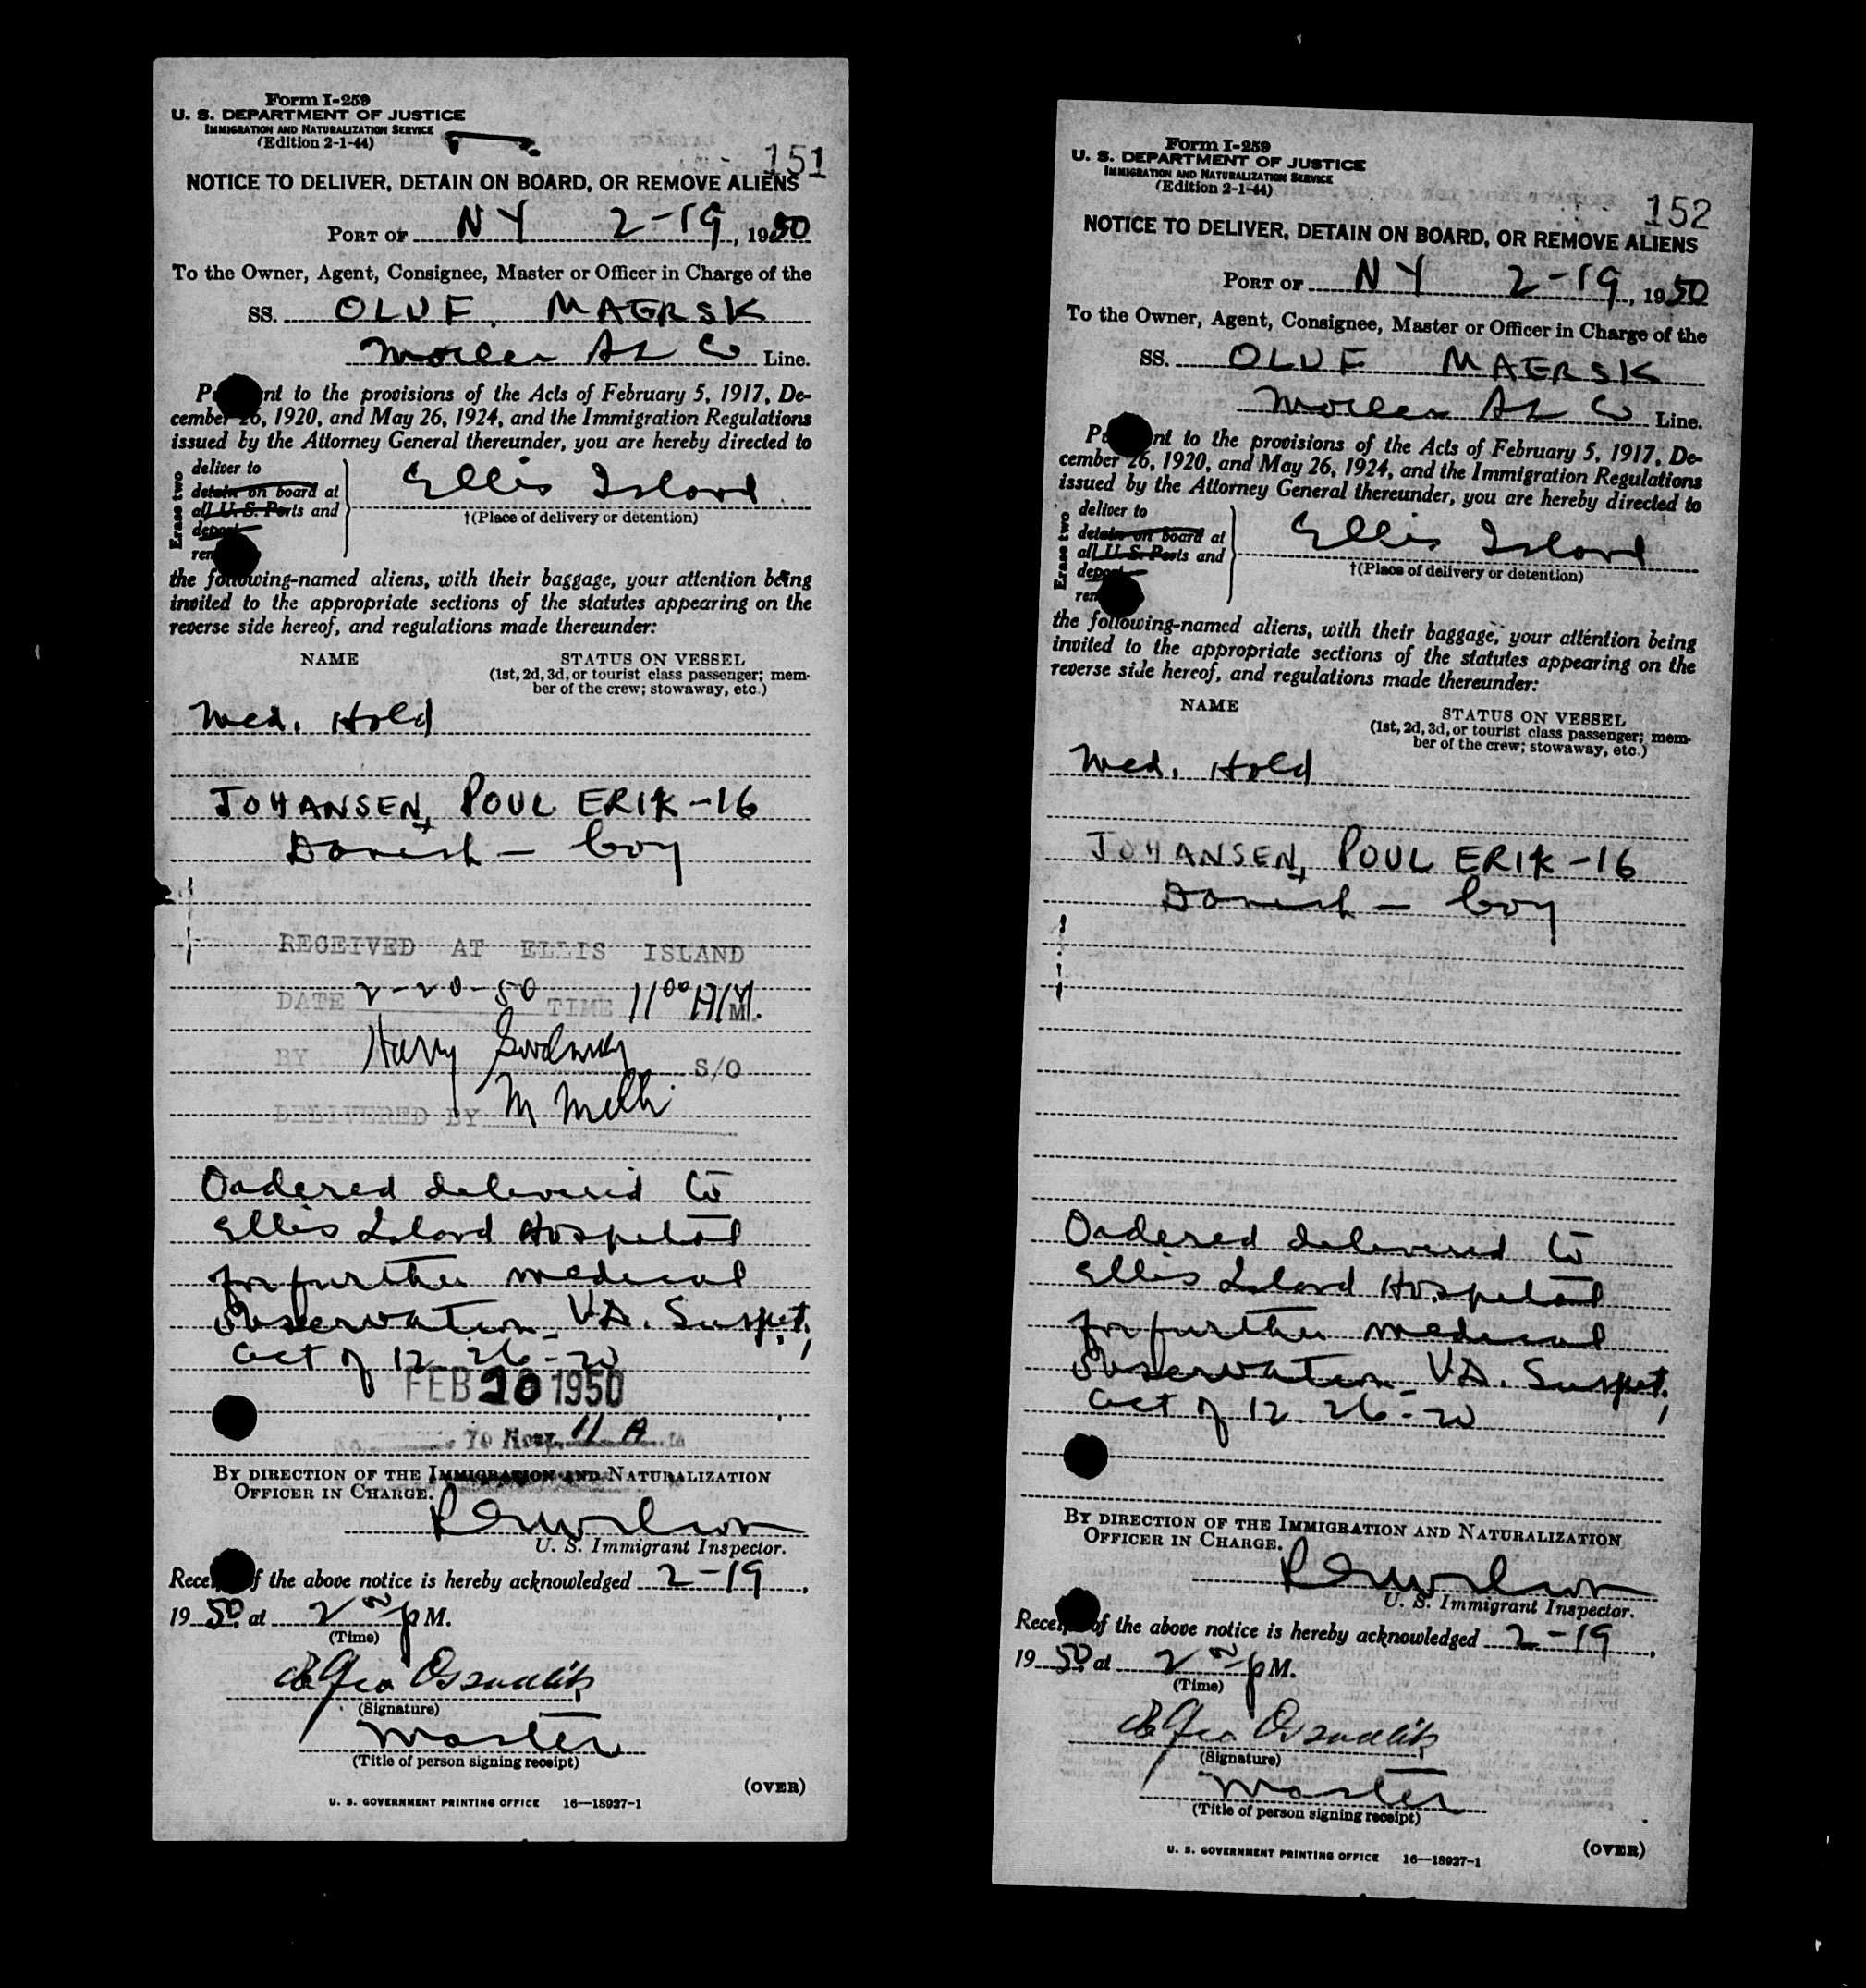 Form I-259
U. S. DEPARTMENT OF JUSTICE
IMMIGRATION AND NATURALIZATION SERVICE
(Edition 2-1-44)
151
NOTICE TO DELIVER, DETAIN ON BOARD, OR REMOVE ALIENS
PORT OF NY 2-19, 1950
To the Owner, Agent, Consignee, Master or Officer in Charge of the
SS. OLUF MAERSK
Moller SS Co Line.
P nt to the provisions of the Acts of February 5, 1917, De-
cember 26, 1920, and May 26, 1924, and the Immigration Regulations
issued by the Attorney General thereunder, you are hereby directed to
Erase two
deliver to
detain on board at
all U. S. Ports and
deport
rem
Ellis Island
†(Place of delivery or detention)
the following-named aliens, with their baggage, your attention being
invited to the appropriate sections of the statutes appearing on the
reverse side hereof, and regulations made thereunder:
NAME
STATUS ON VESSEL
(1st, 2d, 3d, or tourist class passenger; mem-
ber of the crew; stowaway, etc.)
Med. Hold
JOHANSEN, POUL ERIK -16
Danish - boy
RECEIVED AT ELLIS ISLAND
DATE 2-20-50 TIME 11 00 A M.
BY Harry S/O
DELIVERED BY M
Ordered delivered to
Ellis Island Hospital
for further medical
observation - V.D. Suspect,
act of 12-26-20
FEB 20 1950
To Hosp. 11 A
BY DIRECTION OF THE IMMIGRATION AND NATURALIZATION
OFFICER IN CHARGE.
U. S. Immigrant Inspector.
Receipt of the above notice is hereby acknowledged 2-19,
1950 at 2 p M.
(Time)
(Signature)
Master
(Title of person signing receipt)
(OVER)
U. S. GOVERNMENT PRINTING OFFICE 16—18927-1
Form I-259
U. S. DEPARTMENT OF JUSTICE
IMMIGRATION AND NATURALIZATION SERVICE
(Edition 2-1-44)
152
NOTICE TO DELIVER, DETAIN ON BOARD, OR REMOVE ALIENS
PORT OF NY 2-19, 1950
To the Owner, Agent, Consignee, Master or Officer in Charge of the
SS. OLUF MAERSK
Moller SS Co Line.
P nt to the provisions of the Acts of February 5, 1917, De-
cember 26, 1920, and May 26, 1924, and the Immigration Regulations
issued by the Attorney General thereunder, you are hereby directed to
Erase two
deliver to
detain on board at
all U. S. Ports and
deport
rem
Ellis Island
†(Place of delivery or detention)
the following-named aliens, with their baggage, your attention being
invited to the appropriate sections of the statutes appearing on the
reverse side hereof, and regulations made thereunder:
NAME
STATUS ON VESSEL
(1st, 2d, 3d, or tourist class passenger; mem-
ber of the crew; stowaway, etc.)
Med. Hold
JOHANSEN, POUL ERIK -16
Danish - boy
Ordered delivered to
Ellis Island Hospital
for further medical
observation - V.D. Suspect,
act of 12-26-20
BY DIRECTION OF THE IMMIGRATION AND NATURALIZATION
OFFICER IN CHARGE.
U. S. Immigrant Inspector.
Receipt of the above notice is hereby acknowledged 2-19,
1950 at 2 p M.
(Time)
(Signature)
Master
(Title of person signing receipt)
(OVER)
U. S. GOVERNMENT PRINTING OFFICE 16—18927-1